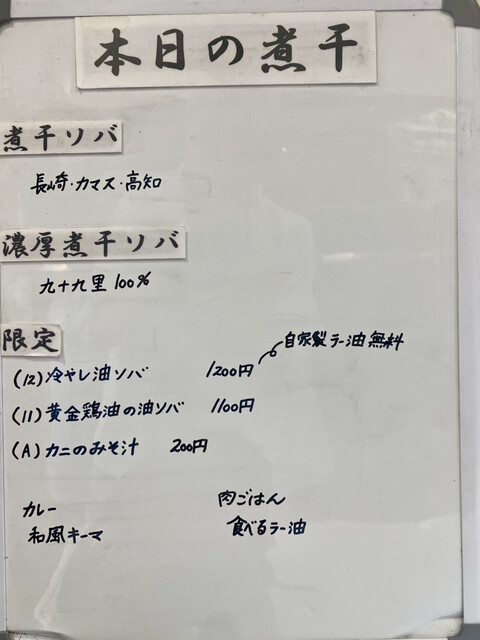 本日の煮干
煮干ソバ
長崎・カマス・高知
濃厚煮干ソバ
九十九里 100%
限定
自家製ラー油無料
(12)冷やし油ソバ 1200円
(11)黄金鶏油の油ソバ 1100円
(A)カニのみそ汁 200円
カレー 肉ごはん
和風キーマ 食べるラー油